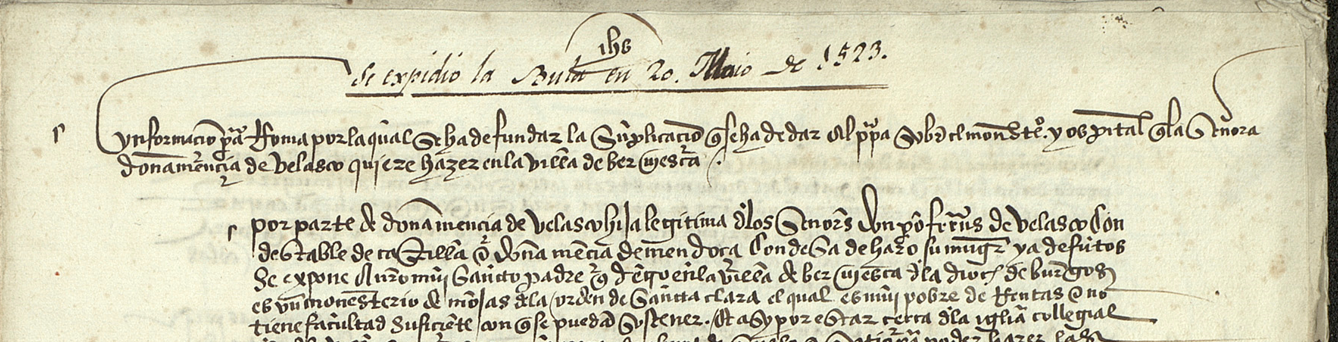 ihs
Se expidio la Bula en 20. Maio de 1523.
ynformacio pa Roma por la qual se ha de fundar la Suplicacio q se ha de dar al ppa sobre el moneste. y ospital q la señora
doña mencia de velasco quiere hazer en la villa de berviesca
por parte de doña mencia de velasco hija legitima de los señores don po ferrns de velasco con
destable de castilla e doña mencia de mendoça condesa de haro su muger ya defutos
se expone a nro muy sancto padre q digo en la villa de berviesca de la dioc de burgos
es un monesterio de mojas de la orden de sancta clara el qual es muy pobre de Rentas e no
tiene facultad suficiente con q se pueda sostener. et asy por estar cerca de la iglia collegial